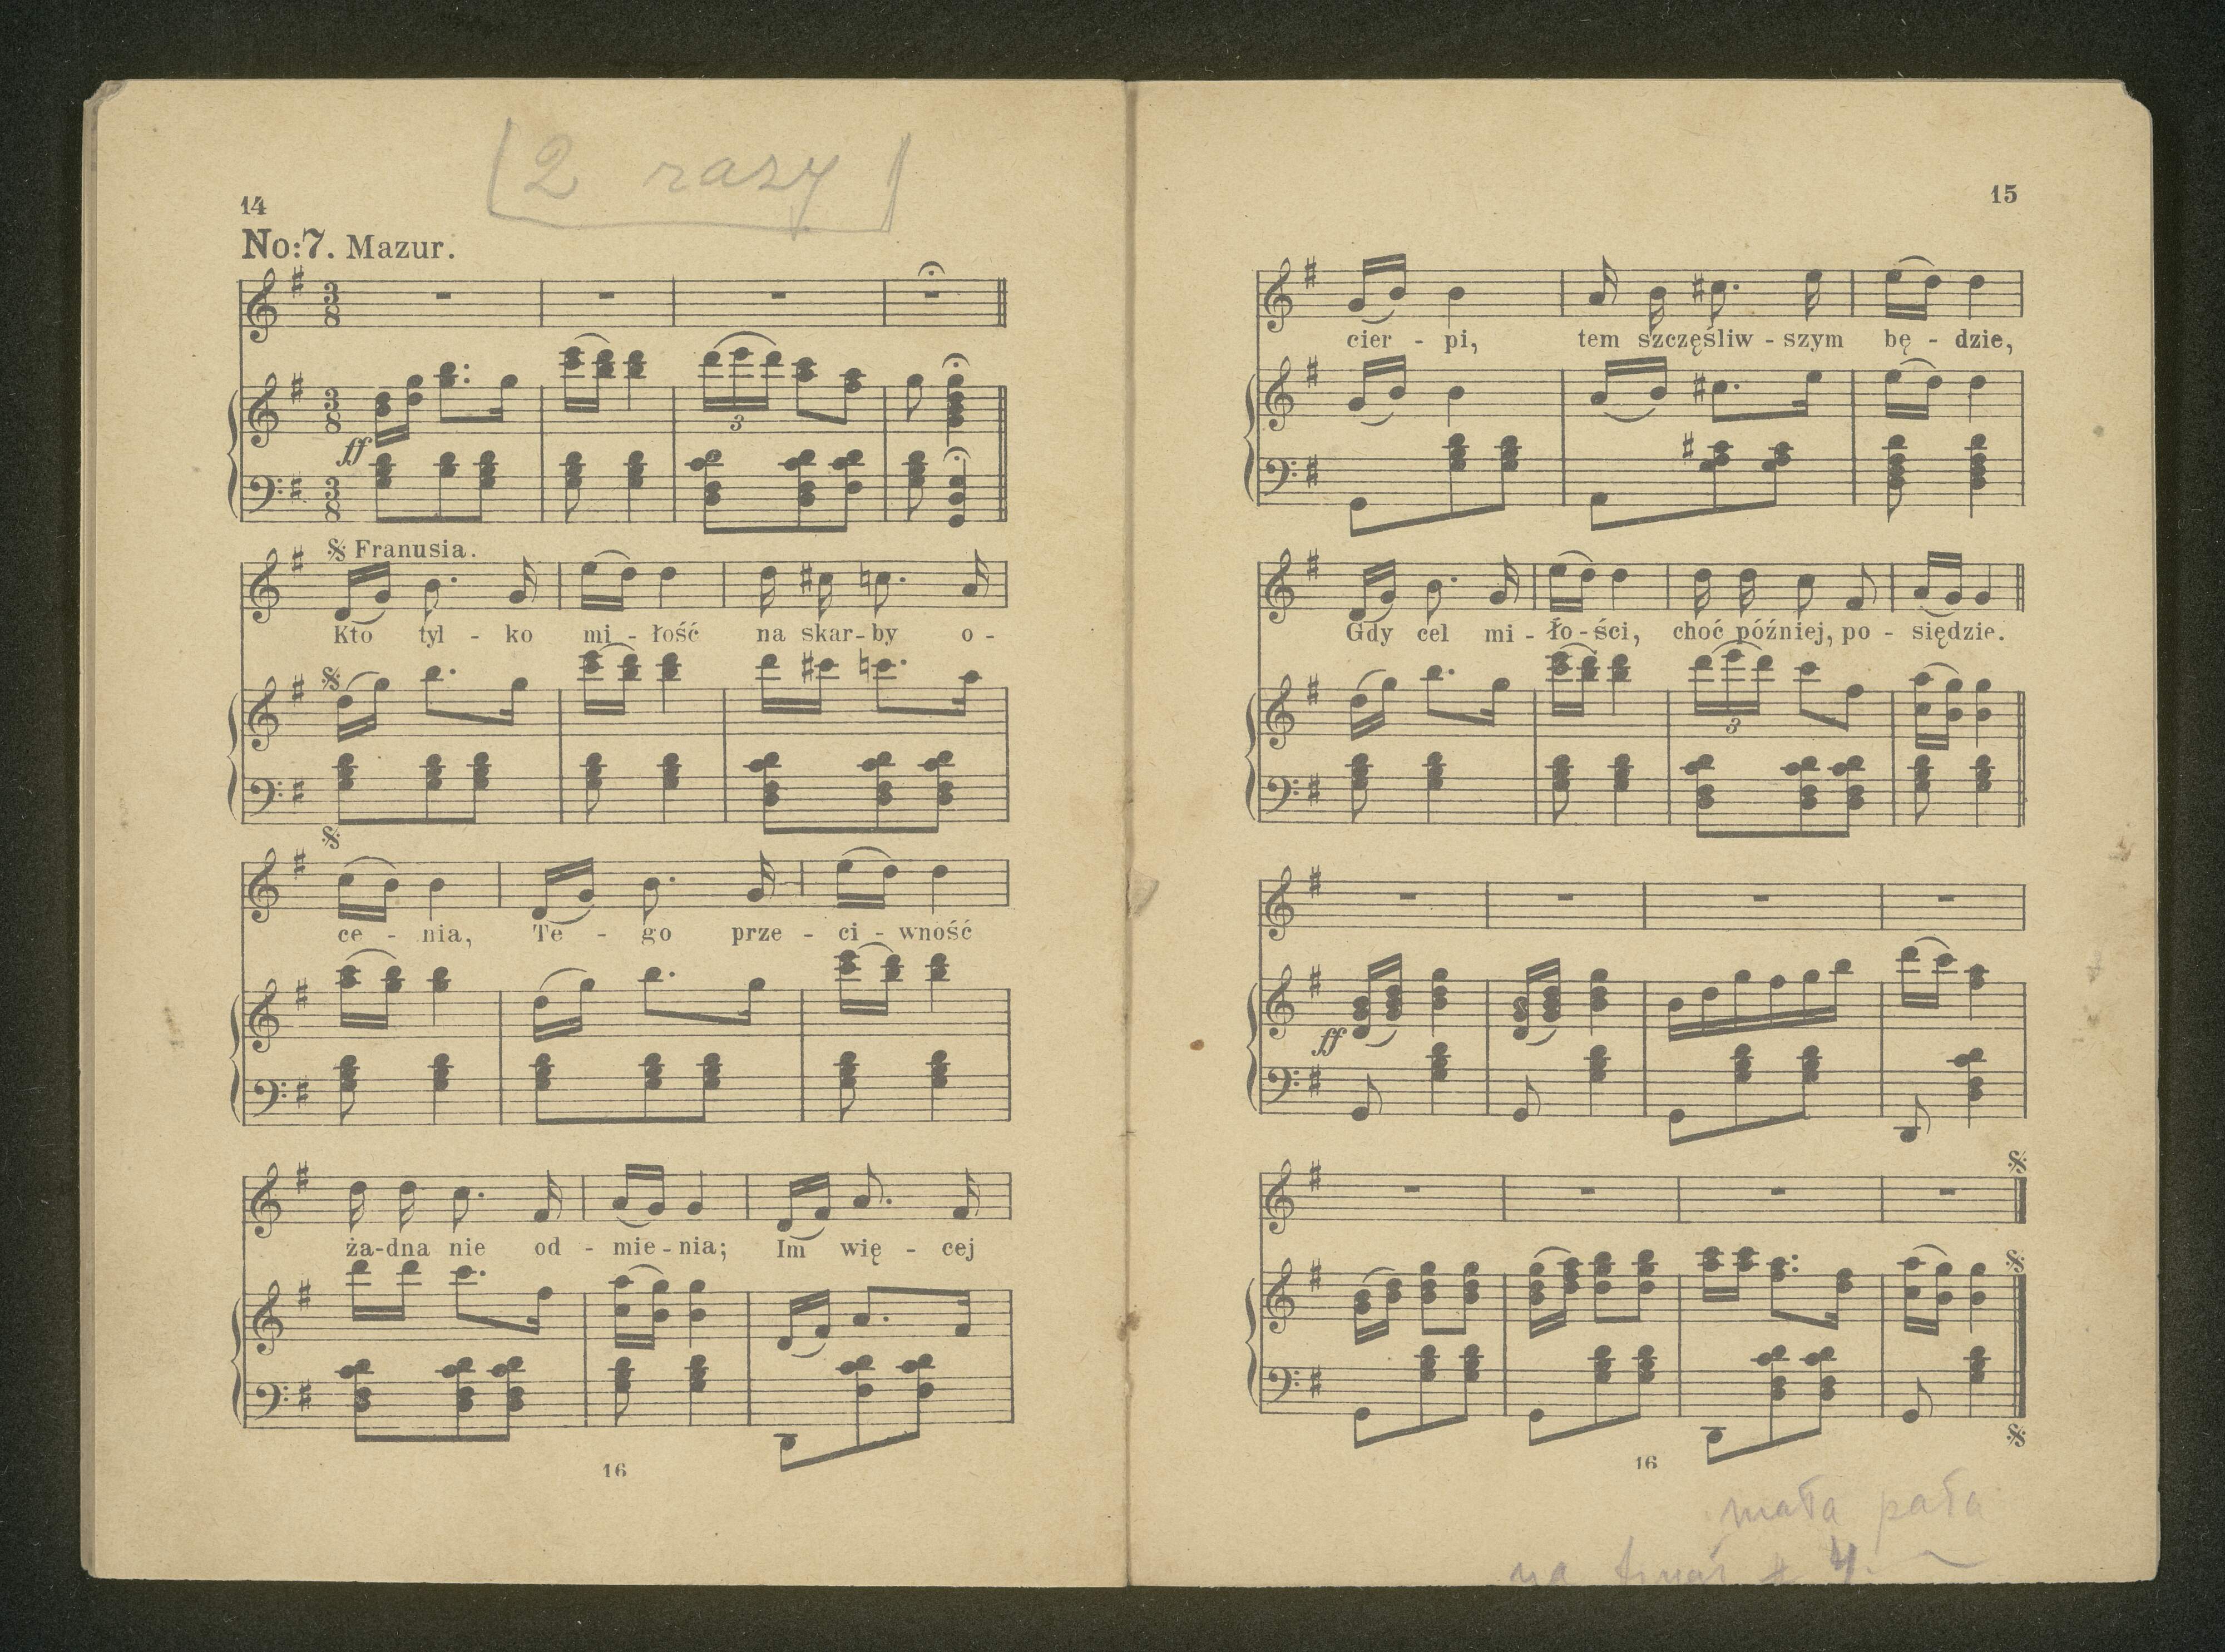 2 razy
14
No:7. Mazur.
3 8
ff
3
Franusia.
Kto tyl - ko mi - łość na skar - by o -
ce - nia, Te - go prze - ci - wność
ża - dna nie od - mie - nia; Im wię - cej
16
15
cier - pi, tem szczęśliw - szym bę - dzie,
Gdy cel mi - ło - ści, choć później, po - siędzie.
3
ff
16
mała pała
na